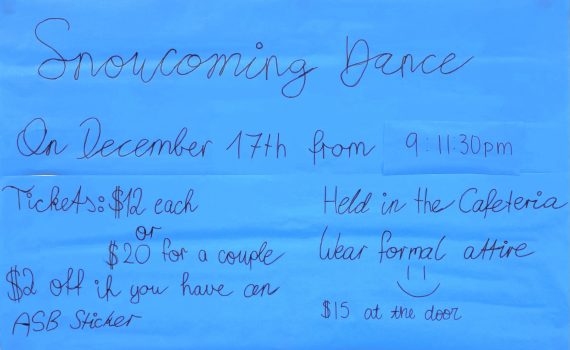 Snowcoming Dance
On December 17th from 9:11:30pm
Tickets: $12 each
or
$20 for a couple
$2 off if you have an
ASB Sticker
Held in the Cafeteria
Wear formal attire
$15 at the door